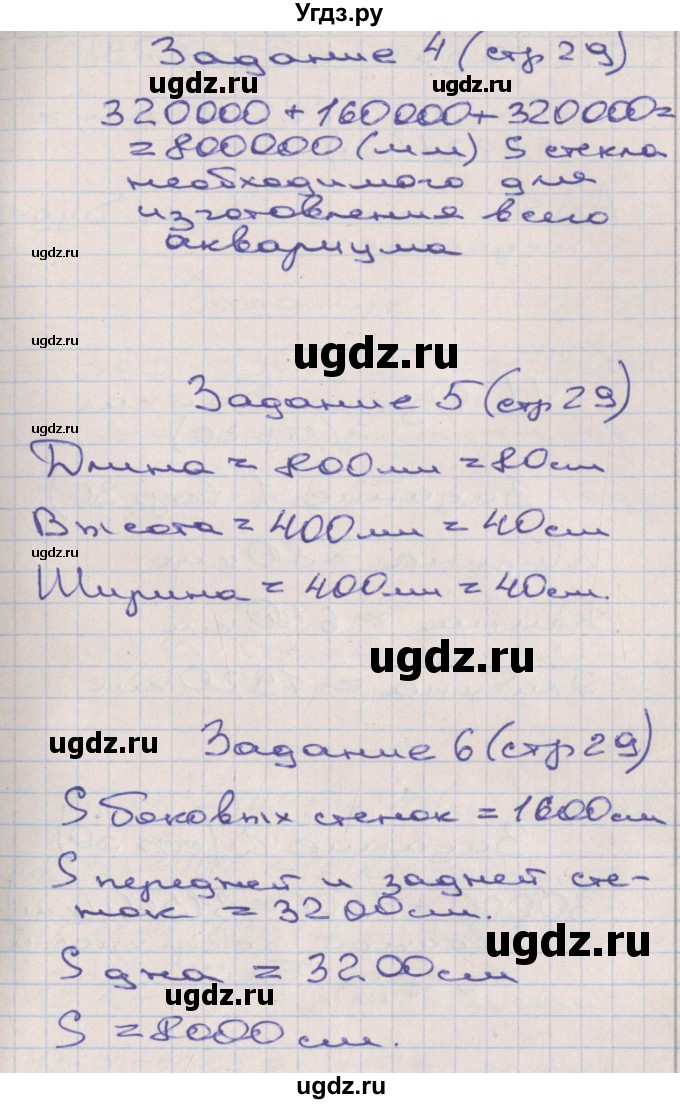 Угдз.ру
Задание 4 (стр 29)
ugdz.ru ugdz.ru
320000 + 160000 + 320000 =
= 800000 (мм) S стекла
необходимого для
изготовления всего
аквариума
ugdz.ru
ugdz.ru
ugdz.ru
Задание 5 (стр 29)
Длина = 800мм = 80см
Высота = 400мм = 40см
ugdz.ru
Ширина = 400мм = 40см.
ugdz.ru
ugdz.ru
Задание 6 (стр 29)
S боковых стенок = 1600см
S передней и задней сте-
нок = 3200см.
ugdz.ru
S дна = 3200см
ugdz.ru
S = 8000см.
ugdz.ru